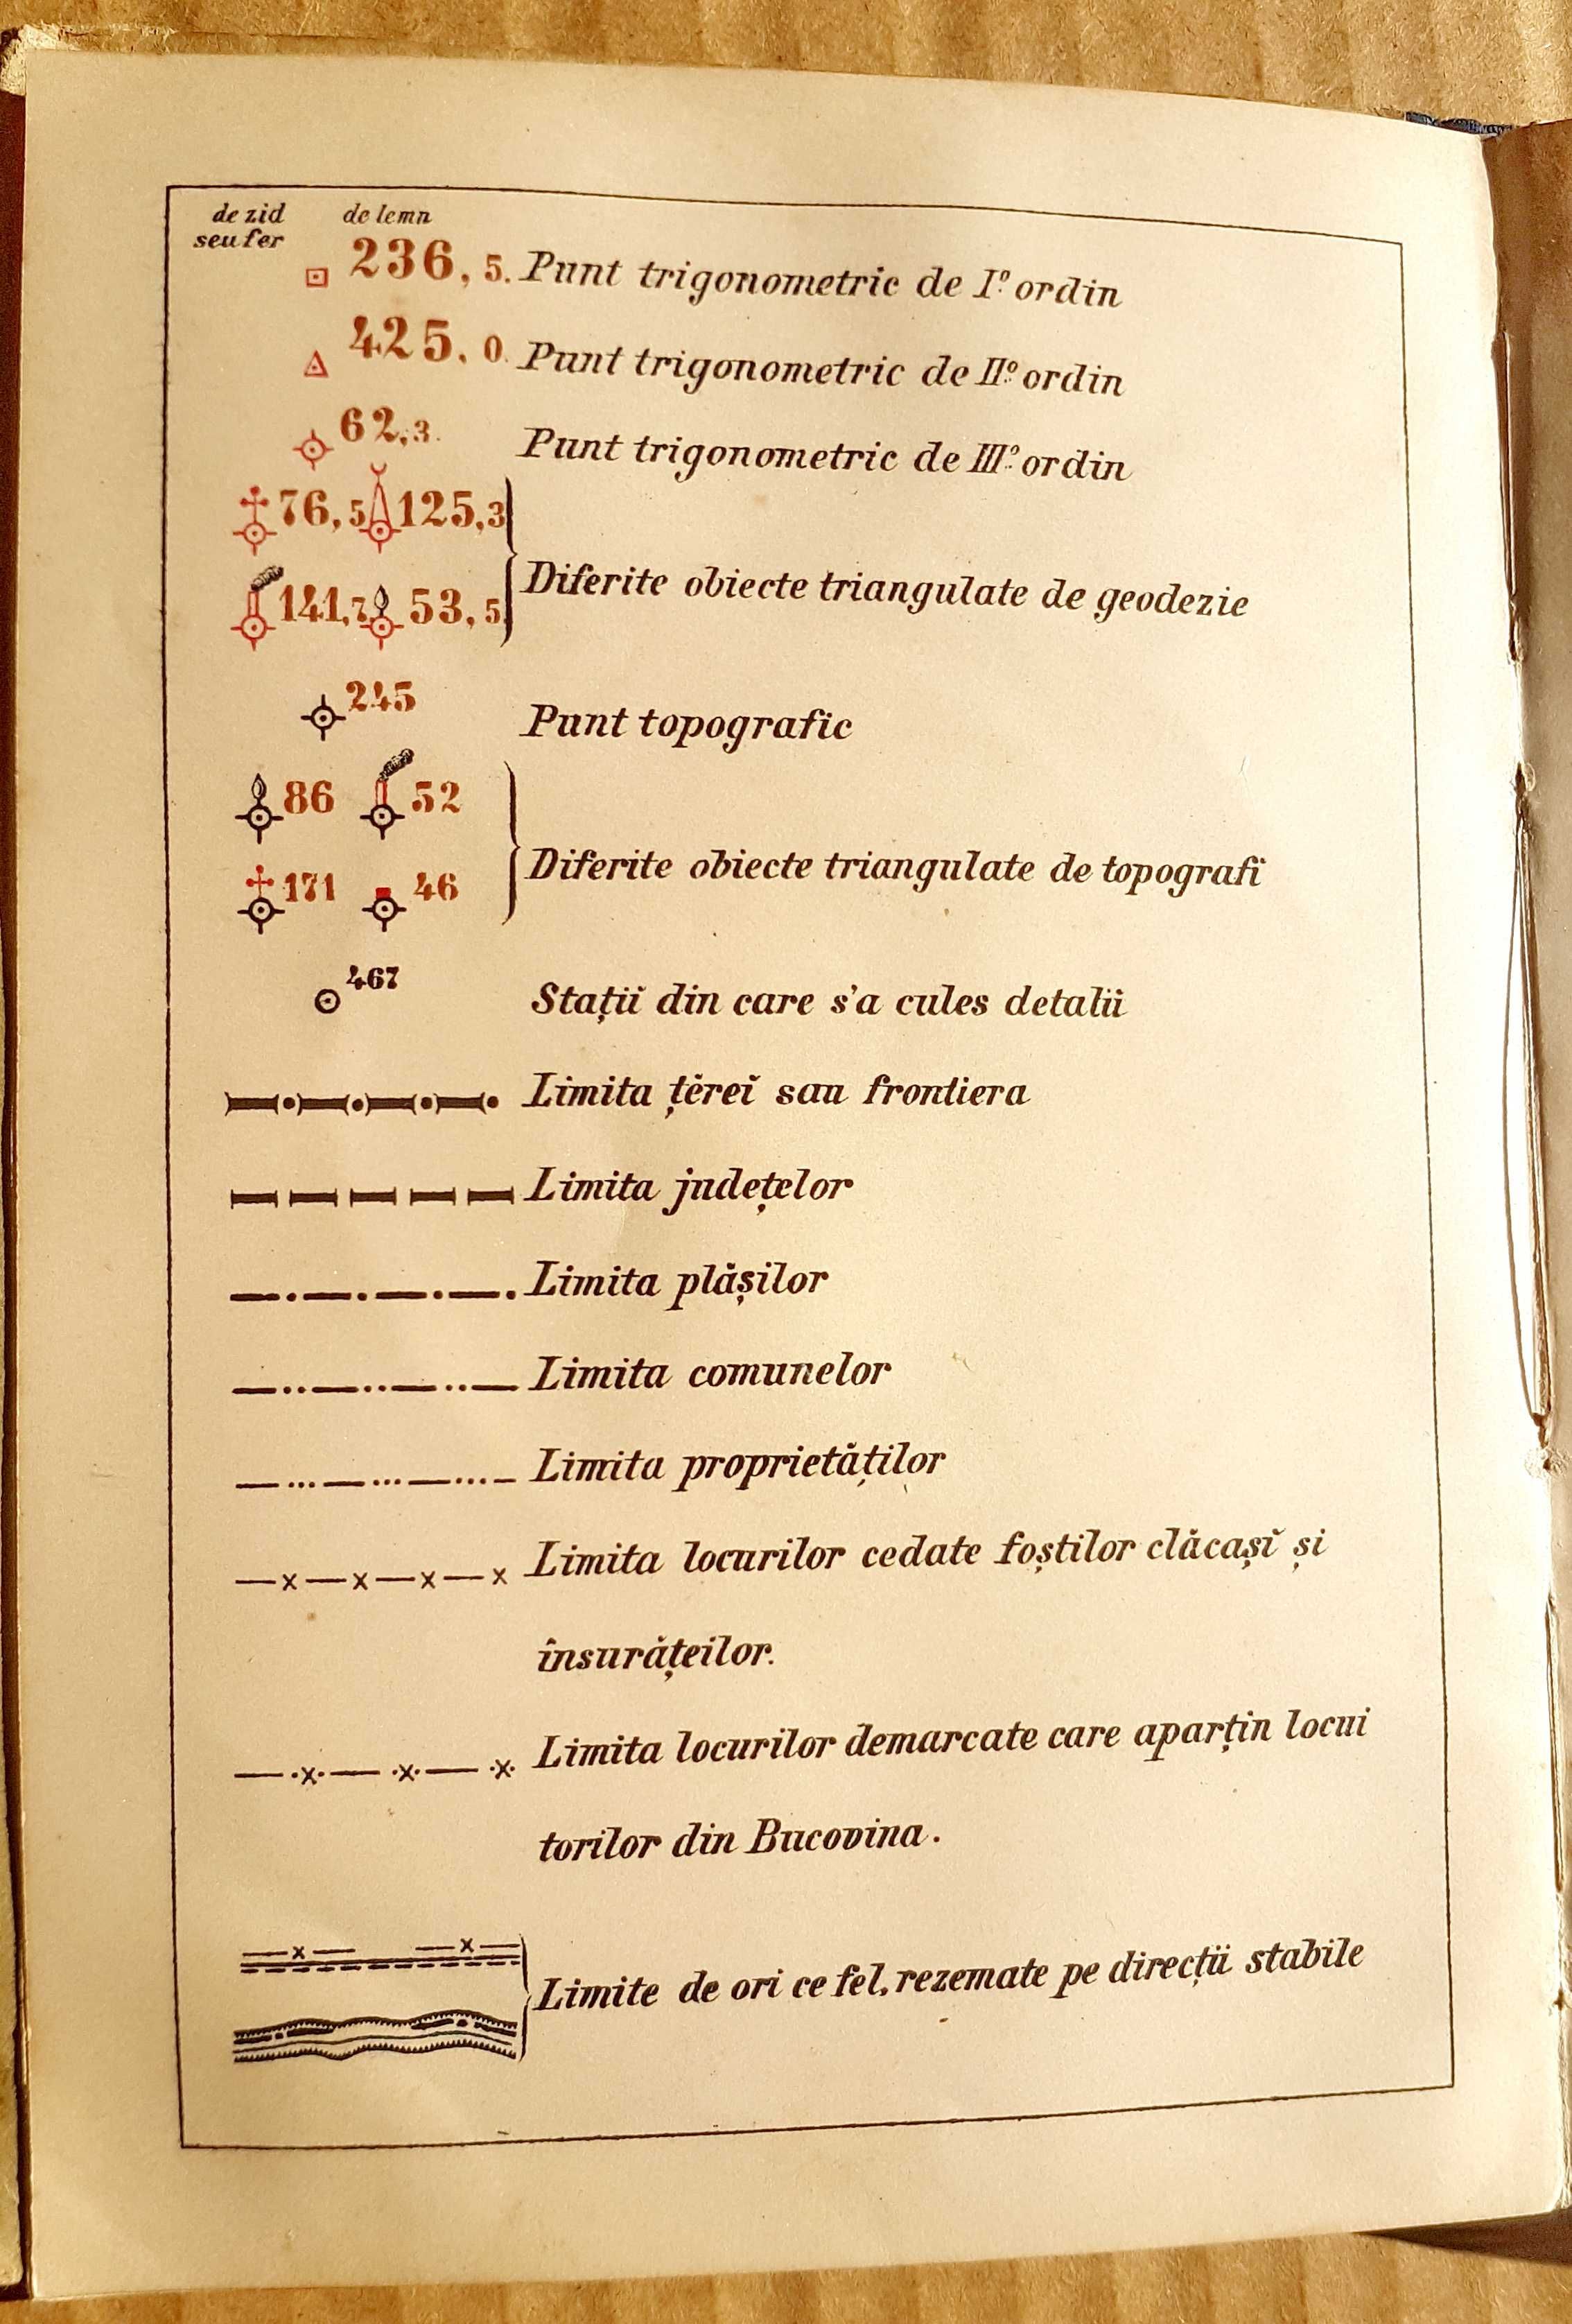 de zid de lemn
seu fer
236, 5. Punt trigonometric de Iº ordin
425, 0. Punt trigonometric de IIº ordin
62,3. Punt trigonometric de IIIº ordin
76, 5 125,3
Diferite obiecte triangulate de geodezie
141,7 53, 5
245 Punt topografic
86 52
Diferite obiecte triangulate de topografi
171 46
467 Stații din care s'a cules detalii
Limita țěreĭ sau frontiera
Limita județelor
Limita plășilor
Limita comunelor
Limita proprietăților
Limita locurilor cedate foștilor clăcașĭ și
însurățeilor.
Limita locurilor demarcate care aparțin locui
torilor din Bucovina.
Limite de ori ce fel, rezemate pe direcții stabile